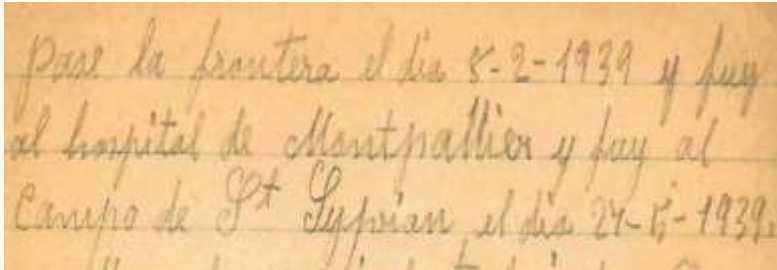 Pase la frontera el dia 8-2-1939 y fuy
al hospital de Montpallier y fuy al
Campo de St Sypvian el dia 24-5-1939.